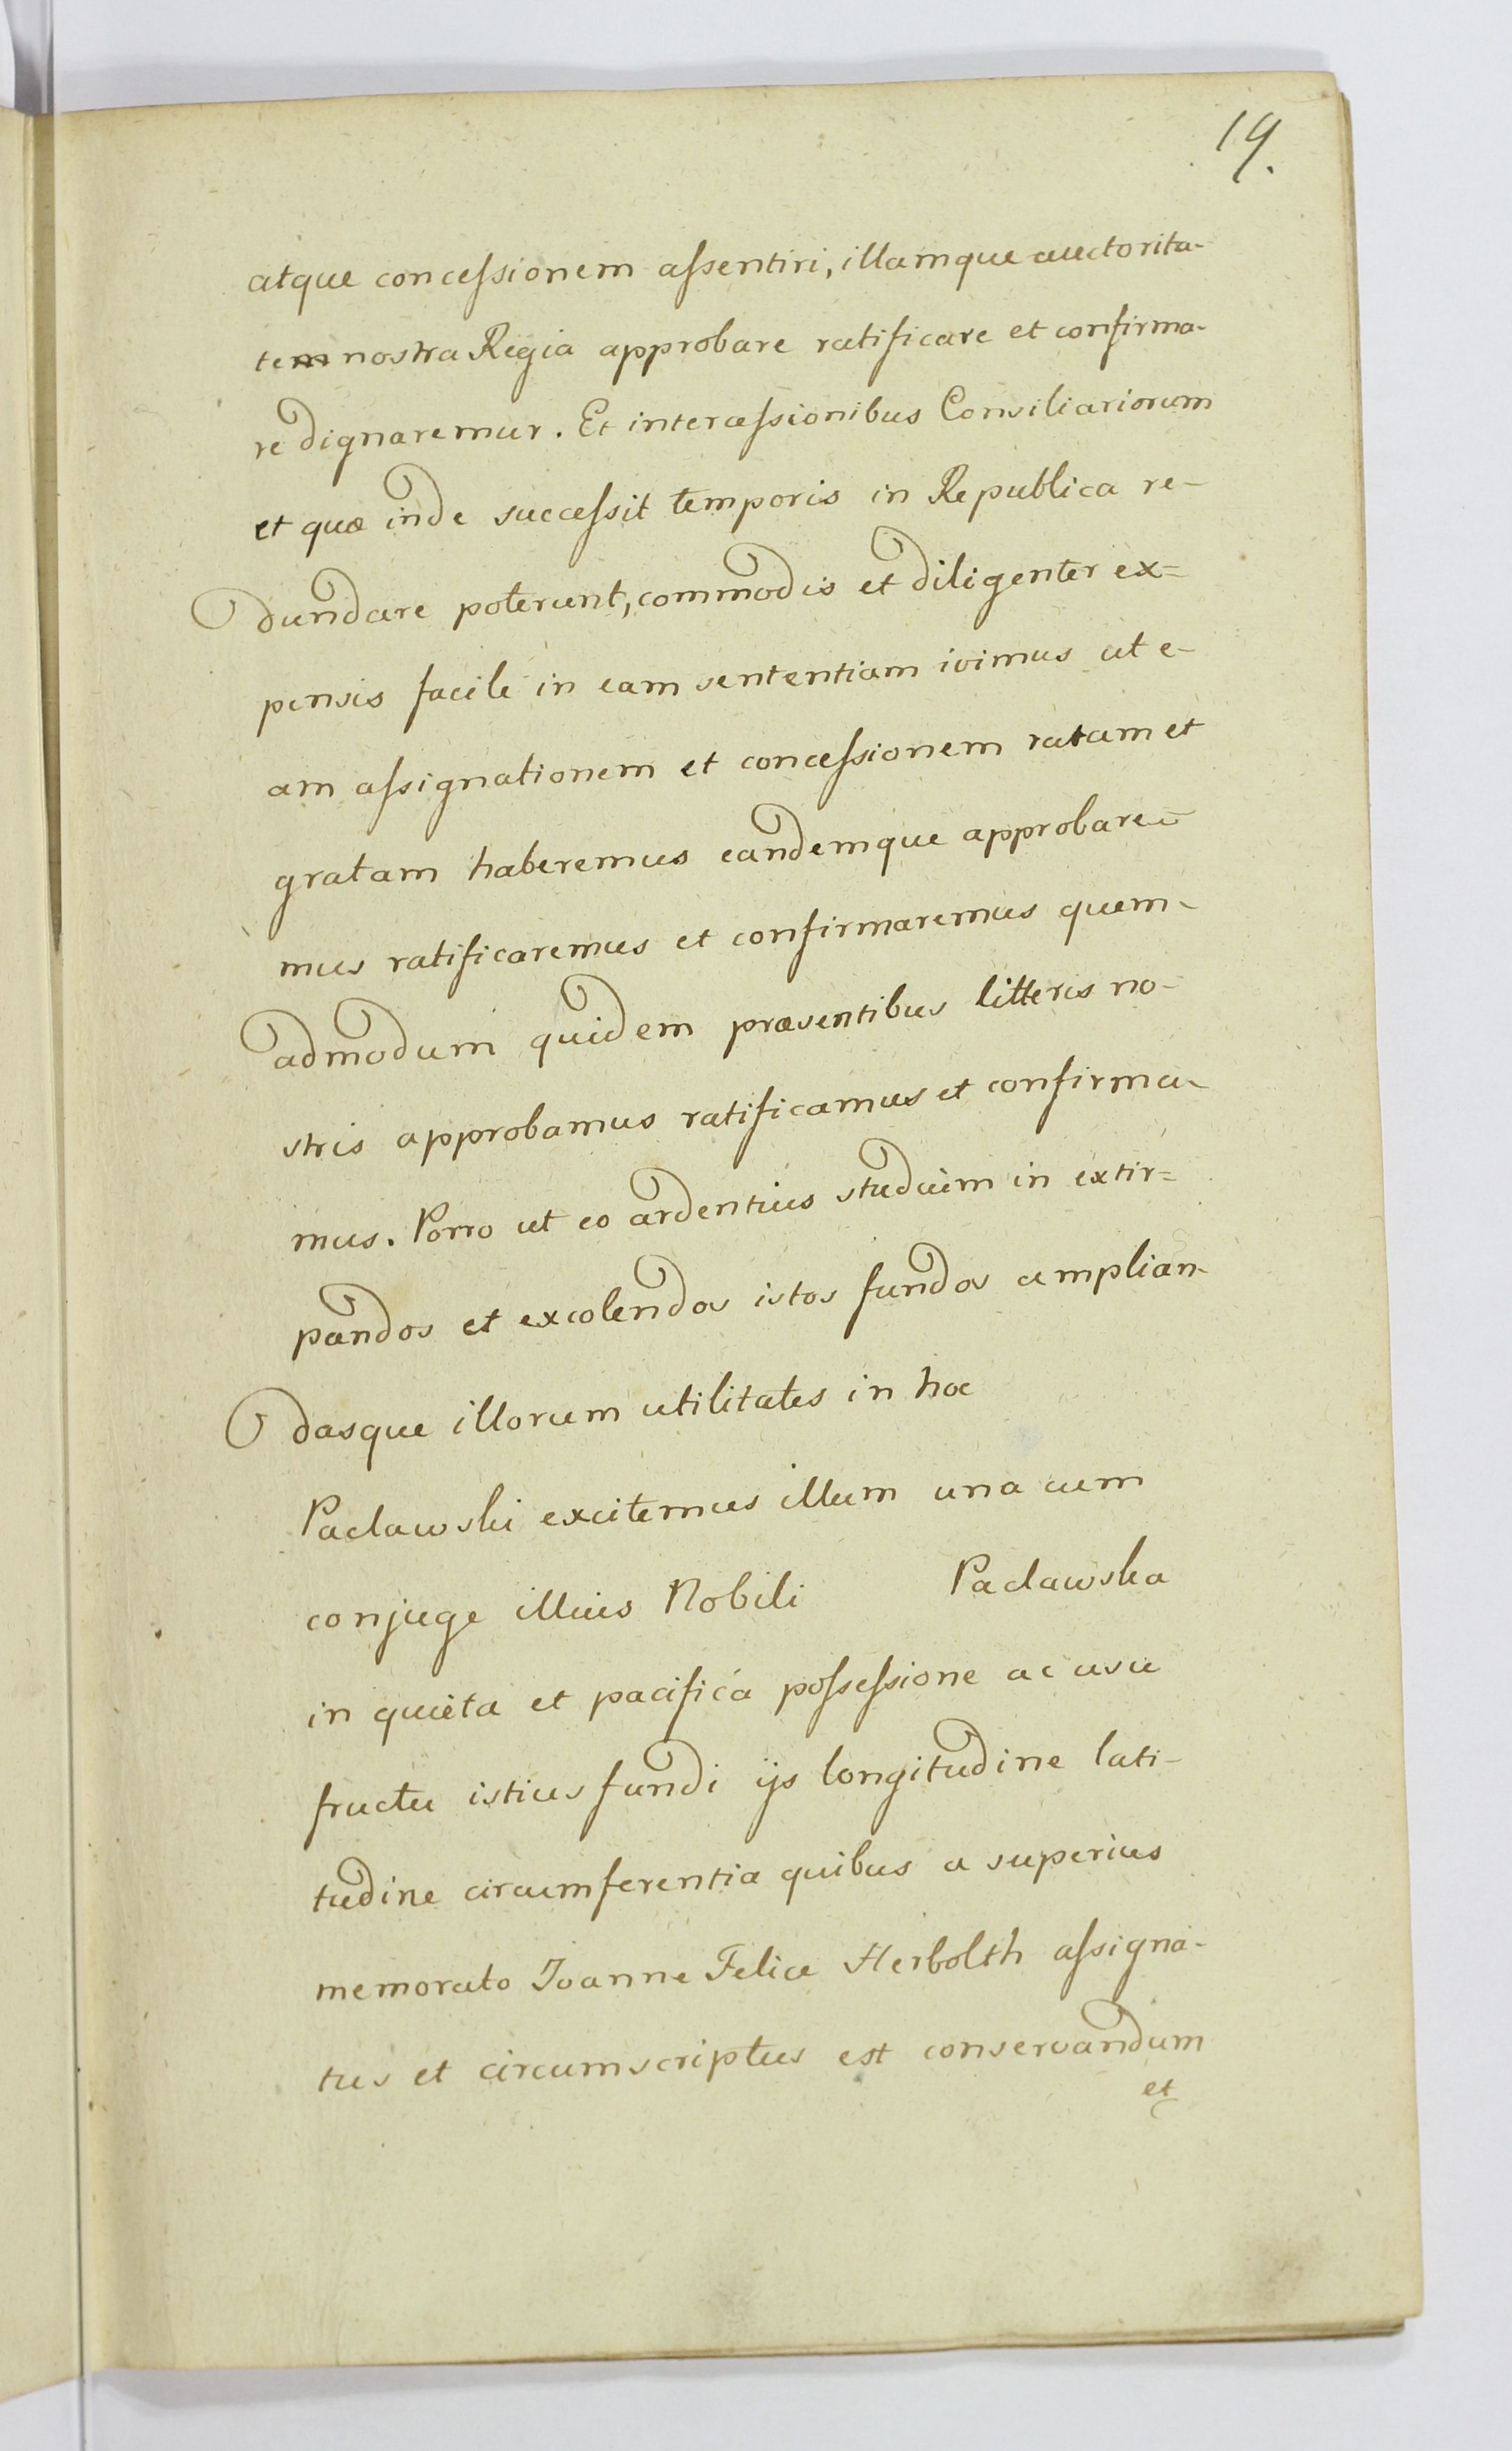 19.
atque concessionem assentiri, illamque auctorita-
tem nostra Regia approbare ratificare et confirma-
re dignaremur. Et intercessionibus Consiliariorum
et quæ inde successit temporis in Republica re-
dundare poterunt, commodis et diligenter ex=
pensis facile in eam sententiam ivimus ut e-
am assignationem et concessionem ratam et
gratam haberemus eandemque approbare-
mus ratificaremus et confirmaremus quem-
admodum quidem præsentibus litteris no-
stris approbamus ratificamus et confirma-
mus. Porro ut eo ardentius studium in extir=
pandos et excolendos istos fundos amplian-
dasque illorum utilitates in hoc
Paclawski excitemus illum una cum
conjuge illius Nobili Paclawska
in quieta et pacifica possessione ac usu
fructu istius fundi ijs longitudine lati-
tudine circumferentia quibus a superius
memorato Joanne Felice Herbolth assigna-
tus et circumscriptus est conservandum
et